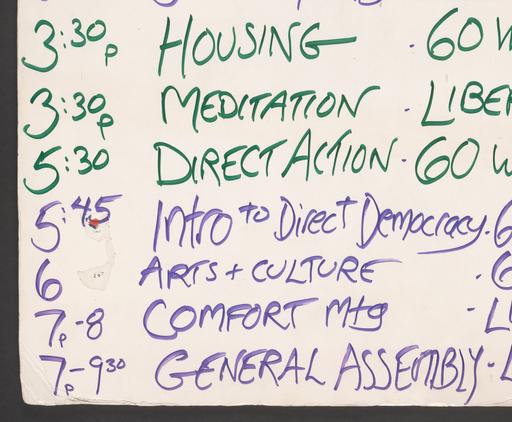 3:30p HOUSING - 60 W
3:30p MEDITATION - LIBER
5:30 DIRECT ACTION - 60 W
5:45 Intro to Direct Democracy - 6
6 ARTS + CULTURE - 6
7p-8 COMFORT Mtg - LI
7p-9:30 GENERAL ASSEMBLY - L